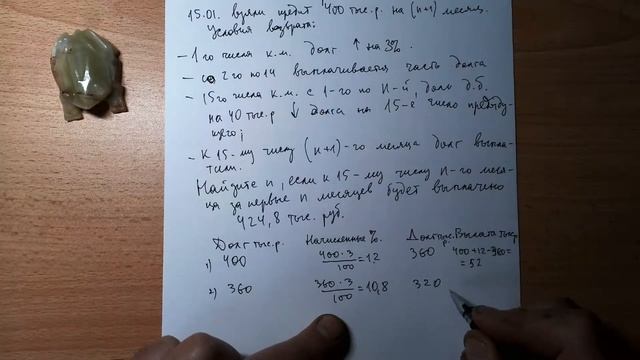 15.01. взяли кредит 400 тыс.р. на (n+1) месяц.
Условия возврата:
– 1го числа к.м. долг ↑ на 3%.
– со 2го по 14 выплачивается часть долга
– 15го числа к.м. с 1-го по n-й, долг д.б.
на 40 тыс.р ↓ долга на 15-е число предыду-
щего;
– К 15-му числу (n+1)-го месяца долг выпла-
тили.
Найдите n, если к 15-му числу n-го меся-
ца за первые n месяцев будет выплачено
424,8 тыс. руб.
Долг тыс.р. Начисленные % Долг тыс.р. Выплата тыс.р
1) 400 400·3/100=12 360 400+12-360=
=52
2) 360 360·3/100=10,8 320